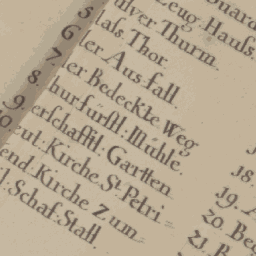 Zeug Hauß.
ulver Thurm.
5 laß. Thor
6. er Aus fall
7. er Bedeckte Weg
8. hurfürstl: Mühle.
9. erschafftl. Gartten
10 eul: Kirche St. Petri
end. Kirche Zum
l: Schaf: Stall
18.
19.
20. Be
21. B